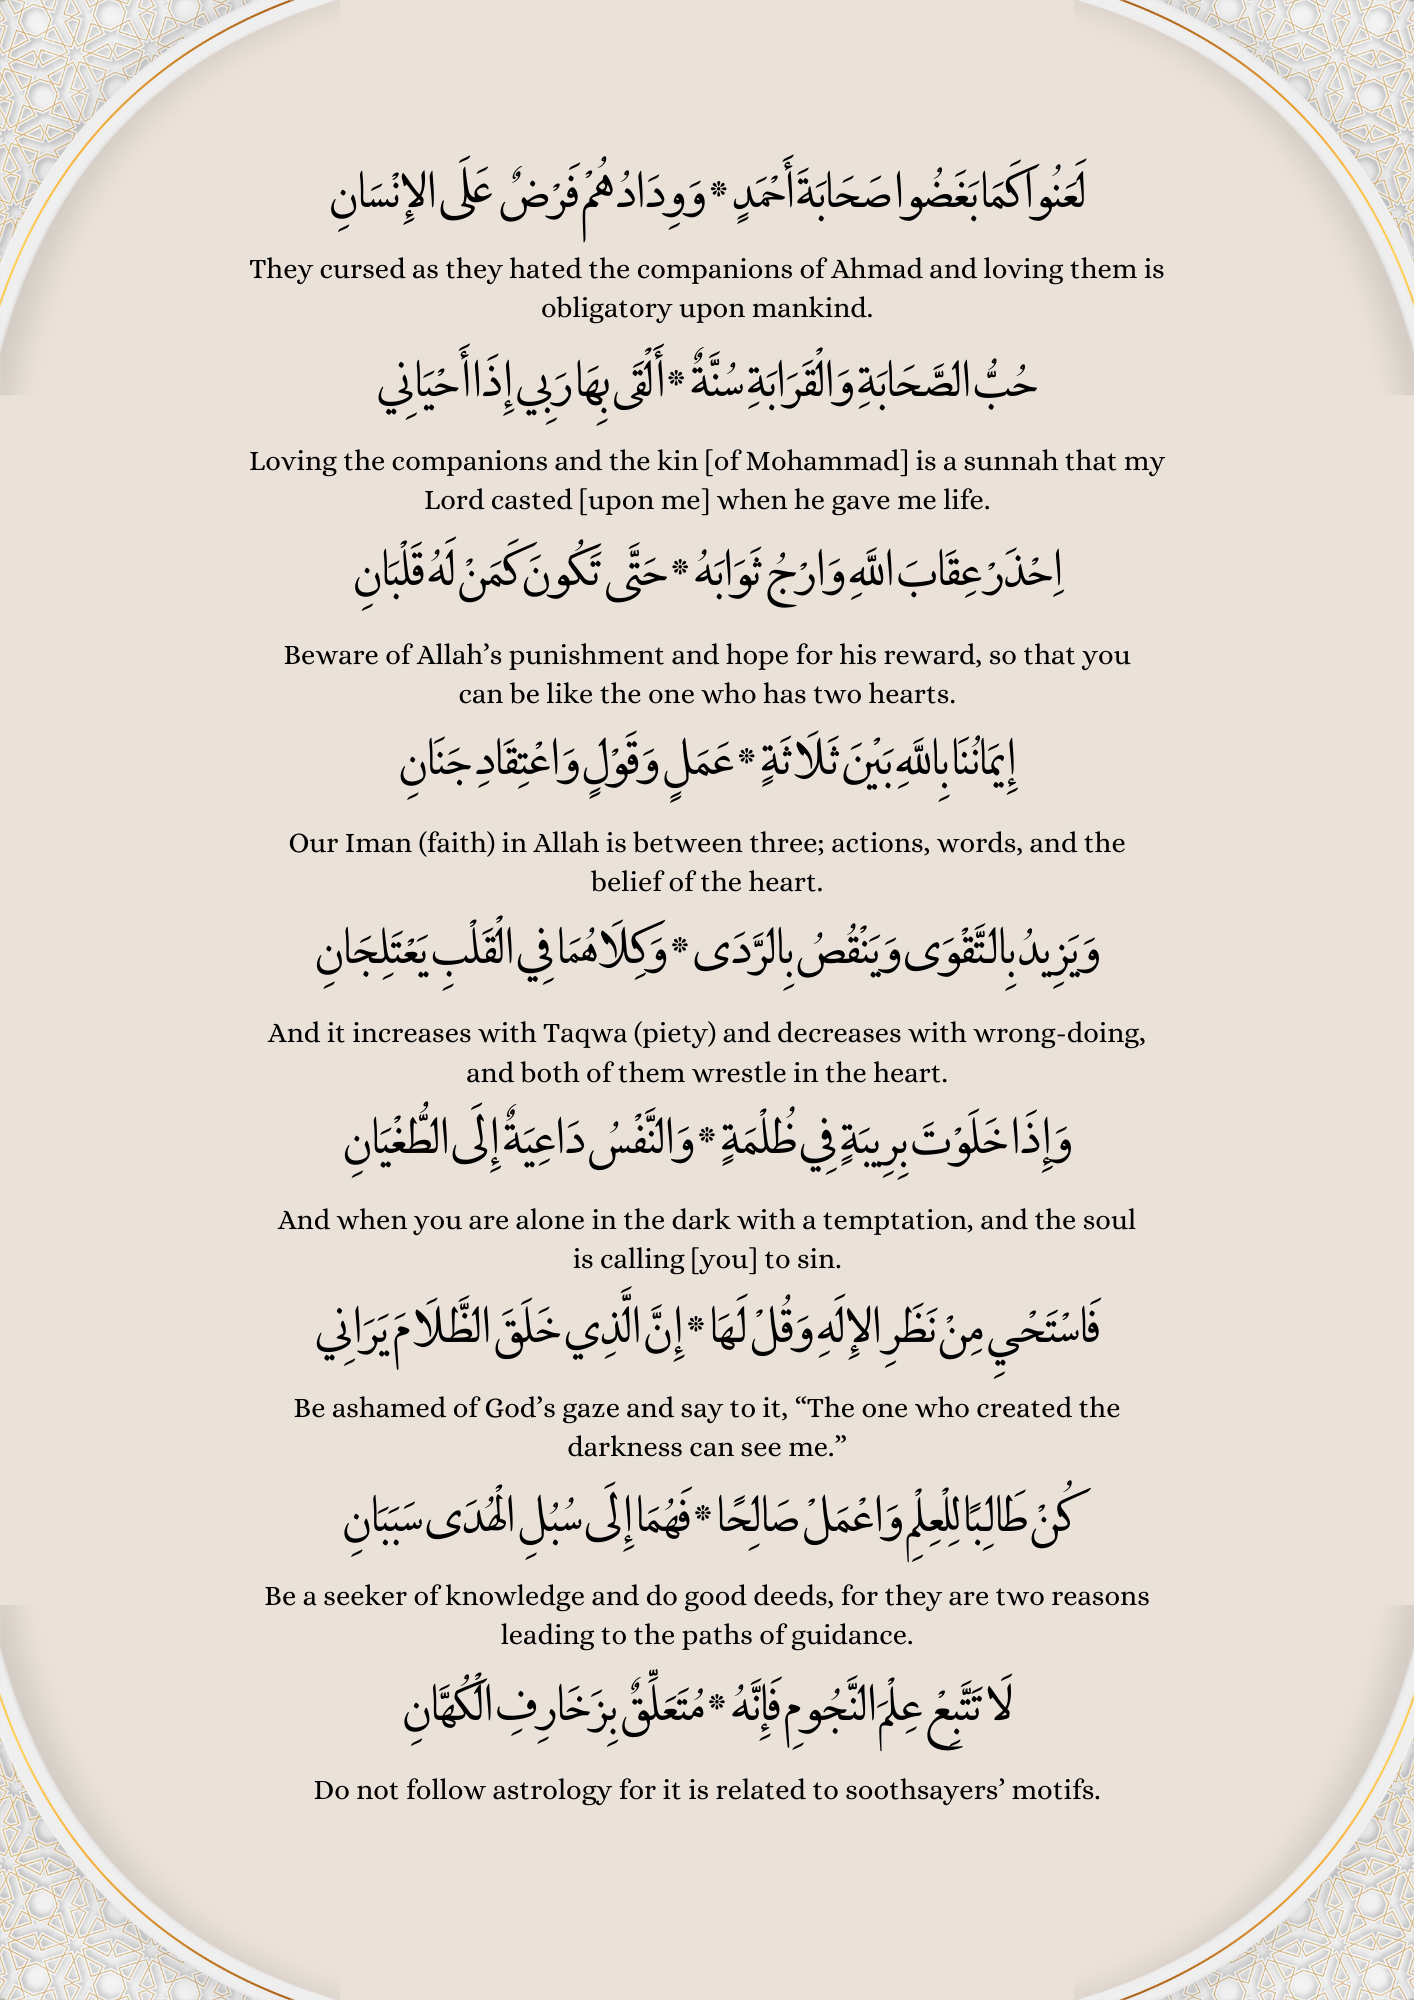 لَعَنُوا كَمَا بَغَضُوا صَحَابَةَ أَحْمَدٍ * وَوِدَادُهُمْ فَرْضٌ عَلَى الإِنْسَانِ
They cursed as they hated the companions of Ahmad and loving them is
obligatory upon mankind.
حُبُّ الصَّحَابَةِ وَالْقَرَابَةِ سُنَّةٌ * أَلْقَى بِهَا رَبِي إِذَا أَحْيَانِي
Loving the companions and the kin [of Mohammad] is a sunnah that my
Lord casted [upon me] when he gave me life.
اِحْذَرْ عِقَابَ اللَّهِ وَارْجُ ثَوَابَهُ * حَتَّى تَكُونَ كَمَنْ لَهُ قَلْبَانِ
Beware of Allah’s punishment and hope for his reward, so that you
can be like the one who has two hearts.
إِيمَانُنَا بِاللَّهِ بَيْنَ ثَلَاثَةٍ * عَمَلٍ وَقَوْلٍ وَاعْتِقَادِ جَنَانِ
Our Iman (faith) in Allah is between three; actions, words, and the
belief of the heart.
وَيَزِيدُ بِالتَّقْوَى وَيَنْقُصُ بِالرَّدَى * وَكِلَاهُمَا فِي الْقَلْبِ يَعْتَلِجَانِ
And it increases with Taqwa (piety) and decreases with wrong-doing,
and both of them wrestle in the heart.
وَإِذَا خَلَوْتَ بِرِيبَةٍ فِي ظُلْمَةٍ * وَالنَّفْسُ دَاعِيَةٌ إِلَى الطُّغْيَانِ
And when you are alone in the dark with a temptation, and the soul
is calling [you] to sin.
فَاسْتَحْيِ مِنْ نَظَرِ الإِلَهِ وَقُلْ لَهَا * إِنَّ الَّذِي خَلَقَ الظَّلَامَ يَرَانِي
Be ashamed of God’s gaze and say to it, “The one who created the
darkness can see me.”
كُنْ طَالِبًا لِلْعِلْمِ وَاعْمَلْ صَالِحًا * فَهُمَا إِلَى سُبُلِ الْهُدَى سَبَبَانِ
Be a seeker of knowledge and do good deeds, for they are two reasons
leading to the paths of guidance.
لَا تَتَّبِعْ عِلْمَ النَّجُومِ فَإِنَّهُ * مُتَعَلِّقٌ بِزَخَارِفِ الْكُهَّانِ
Do not follow astrology for it is related to soothsayers’ motifs.